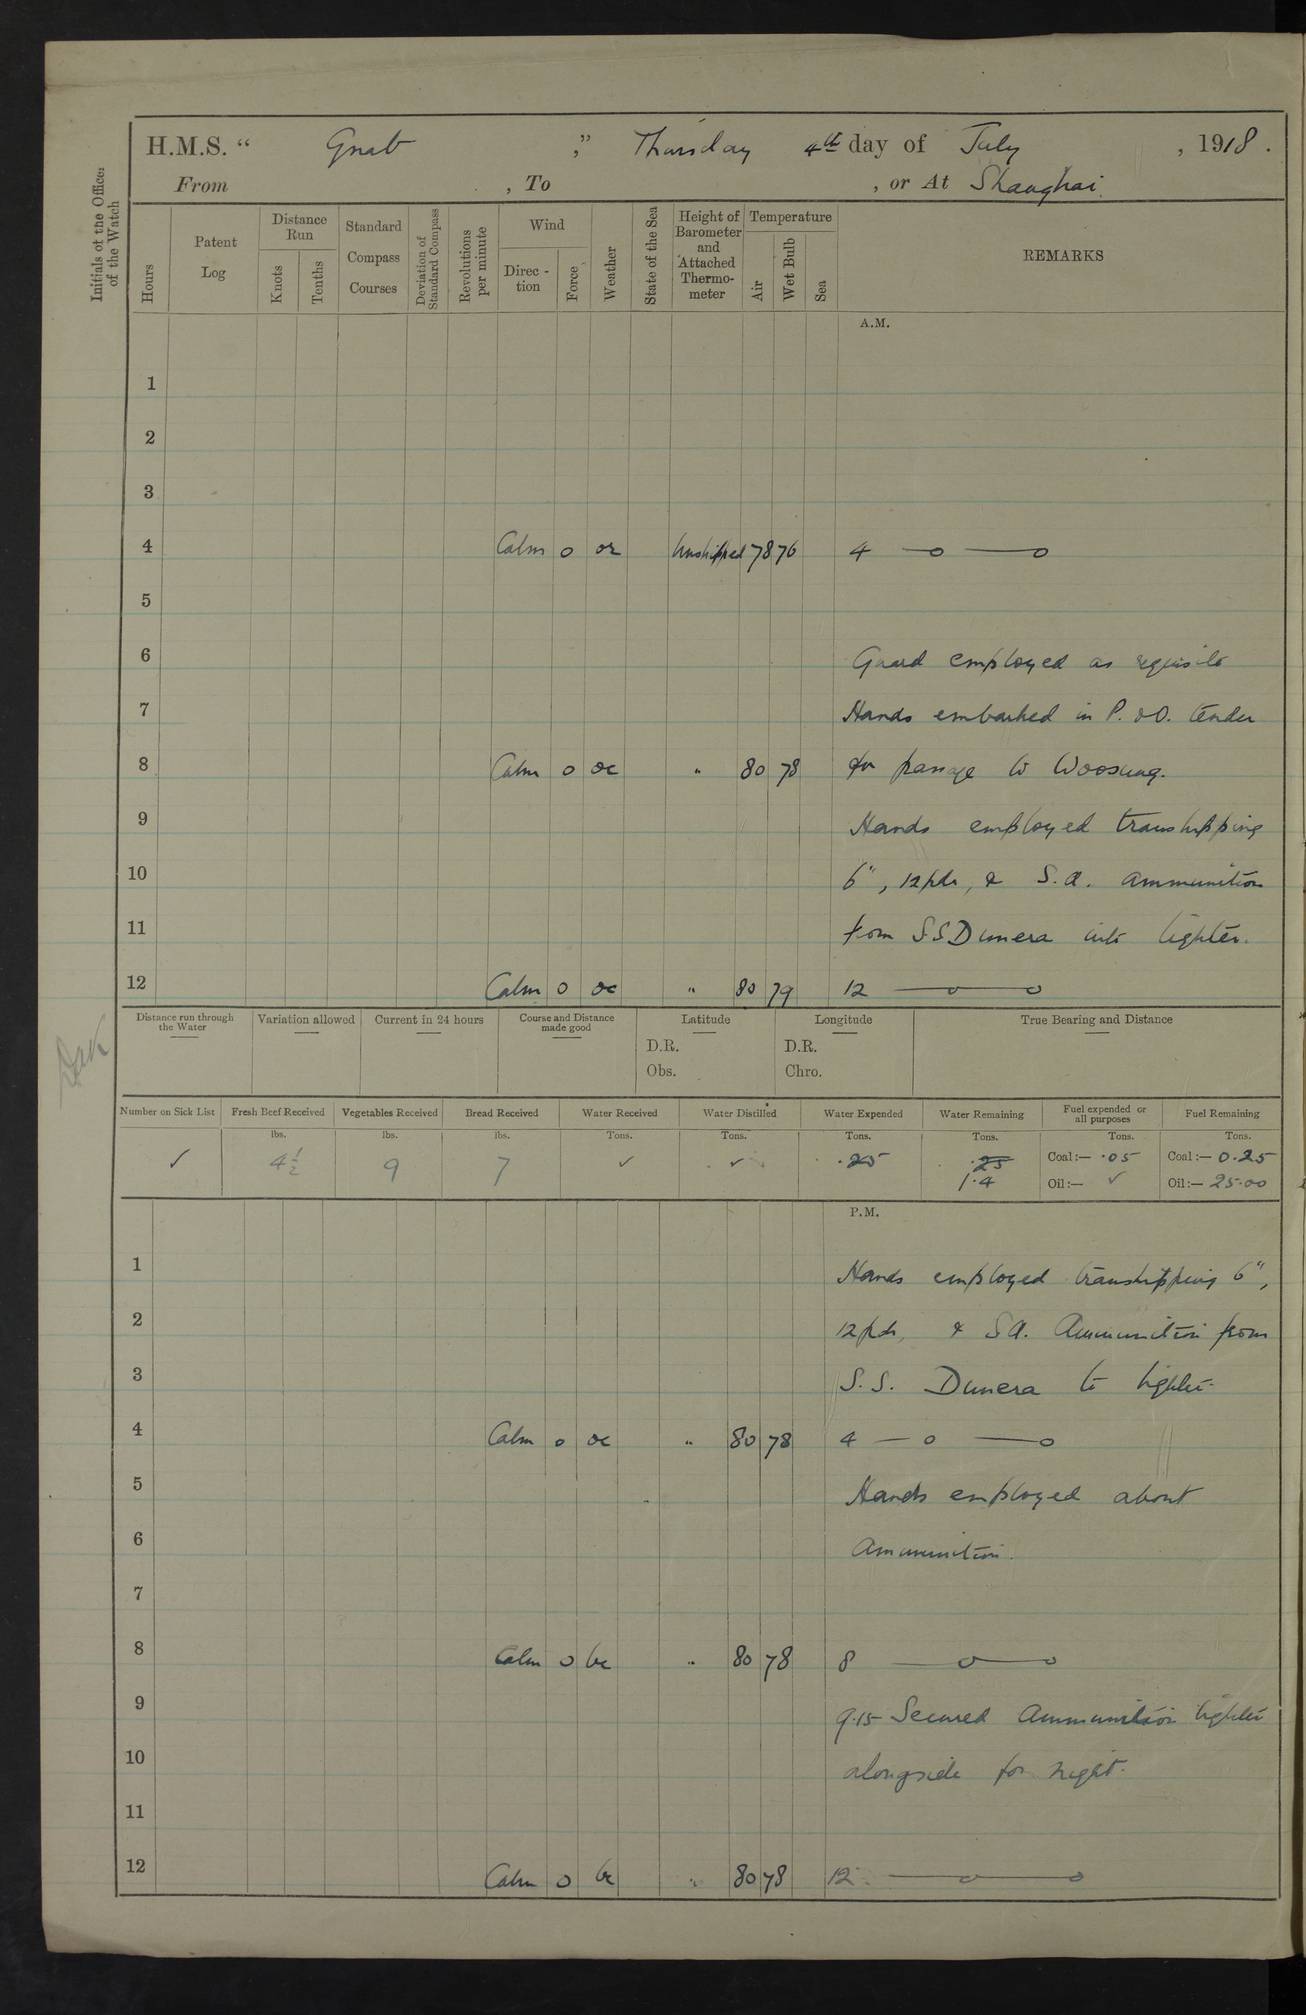 H.M.S. “ Gnat ,” Thursday 4th day of July , 1918 .
From , To , or At Shanghai.
Initials of the Officer
of the Watch
Hours
Patent Log
Distance Run
Knots
Tenths
Standard Compass Courses
Deviation of Standard Compass
Revolutions per minute
Wind
Direc-tion
Force
Weather
State of the Sea
Height of Barometer and Attached Thermo-meter
Temperature
Air
Wet Bulb
Sea
REMARKS
A.M.
1
2
3
4 Calm o or Unshipped 78 76 4 —o —o
5
6 Guard employed as requisite
7 Hands embarked in P. & O. tender
8 Calm o oc " 80 78 for passage to Woosung.
9 Hands employed transhipping
10 6", 12pdr, & S.A. ammunition
11 from S.S Dunera into lighter.
12 Calm o oc " 80 79 12 —o —o
Distance run through the Water
Variation allowed
Current in 24 hours
Course and Distance made good
Latitude
D.R.
Obs.
Longitude
D.R.
Chro.
True Bearing and Distance
Number on Sick List Fresh Beef Received Vegetables Received Bread Received Water Received Water Distilled Water Expended Water Remaining Fuel expended or all purposes Fuel Remaining
lbs. lbs. lbs. Tons. Tons. Tons. Tons. Tons. Tons.
✓ 4½ 9 7 ✓ ✓ .25 .25 Coal:— .05 Coal:— 0.25
1.4 Oil:— ✓ Oil:— 25.00
P.M.
1 Hands employed transhipping 6",
2 12pdr, & SA. Ammunition from
3 S.S. Dunera to lighter.
4 Calm o oc " 80 78 4 —o —o
5 Hands employed about
6 Ammunition.
7
8 Calm o bc " 80 78 8 —o —o
9 9.15 Secured Ammunition lighter
10 alongside for night.
11
12 Calm o bc " 80 78 12. —o —o